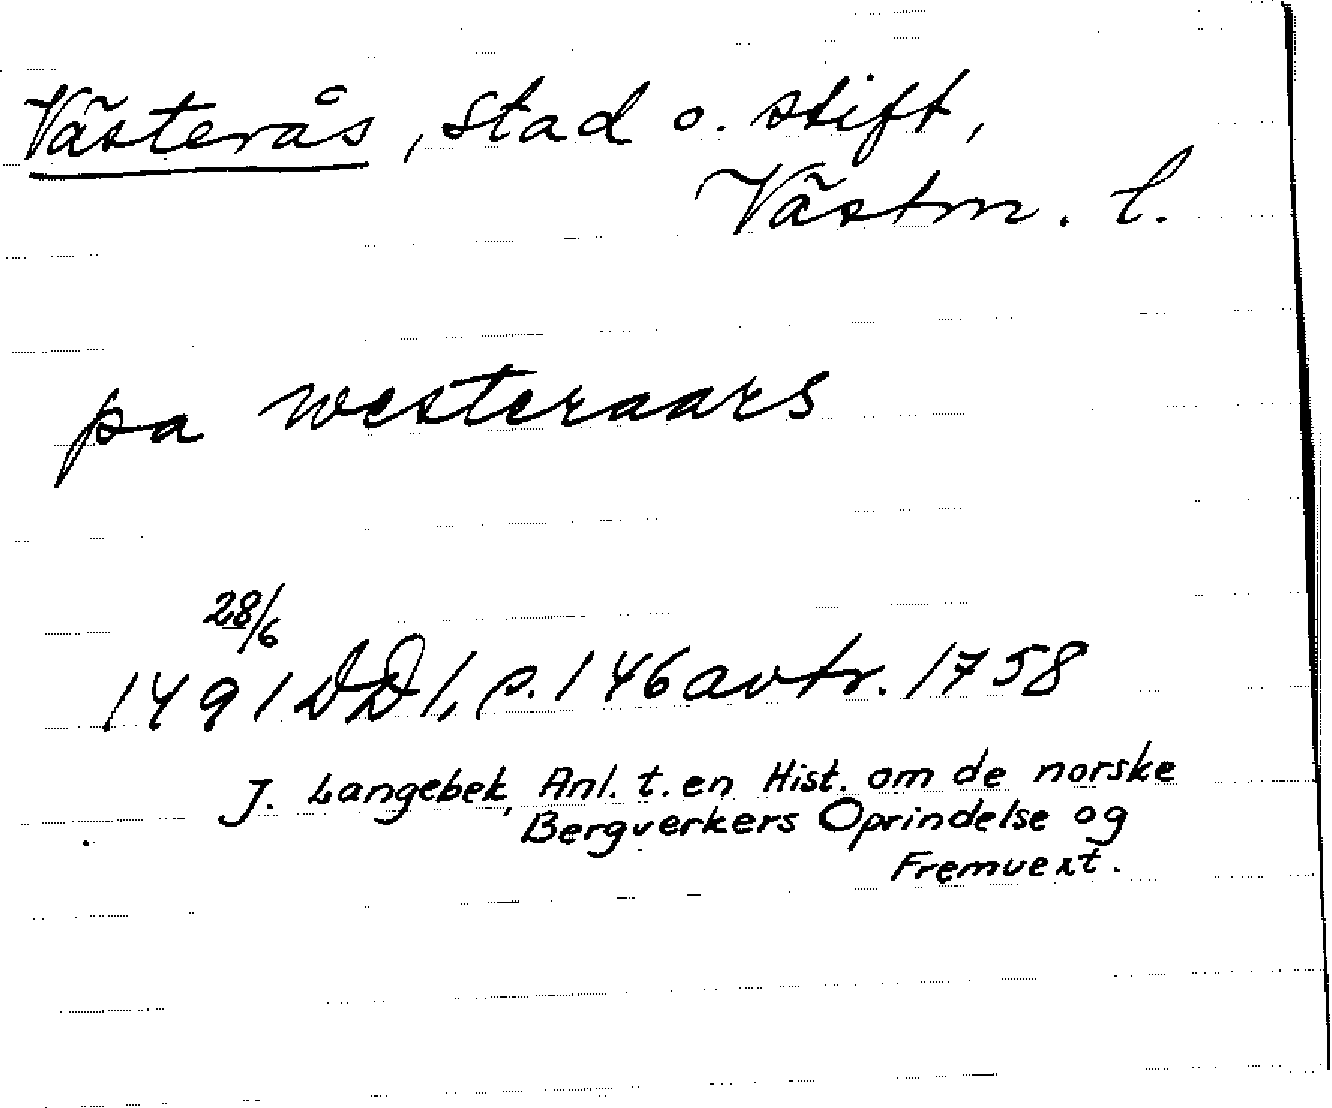 Västerås, stad o. stift,
Västm. l.
pa westeraars
28/6
1491 DD 1, p. 146 avtr. 1758
J. Langebek, Anl. t. en Hist. om de norske
Bergverkers Oprindelse og
Fremvext.